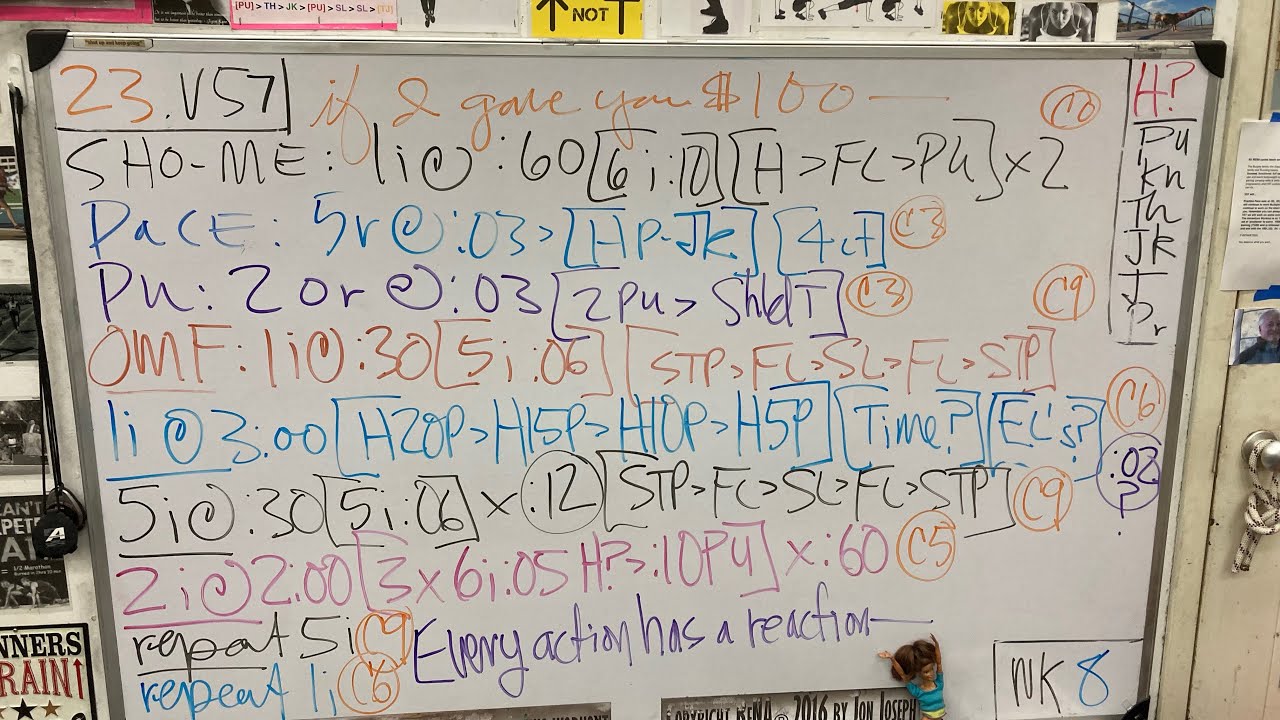 [PU] > TH > JK > [PU] > SL > SL > [TJ]
NOT
"Shut up and keep going"
23.V57 if I gave you $100 —
C0
SHO-ME: 1i@:60 [6i:10] [H>FL>PU] x 2
PACE: 5r@:03> [HP-JK] [4ct] C3
PU: 2 or@:03 [2PU> ShldT] C3 C9
OMF: 1i@:30 [5i:06] [STP>FL>SL>FL>STP]
1i@3:00 [H20P>H15P>H10P>H5P] [Time?] [EL's?] C6
:02?
5i@:30 [5i:06] x :12 [STP>FL>SL>FL>STP] C9
2i@2:00 [3x6i:05 H?>:10PU] x :60 C5
repeat 5i C9 Every action has a reaction —
repeat 1i C6
H?
PU
Kn
Th
JK
T
Pr
WK 8
CAN'T
1/2 Marathon
NNERS
RAIN↑
COPYRIGHT RENA © 2016 BY JON JOSEPH